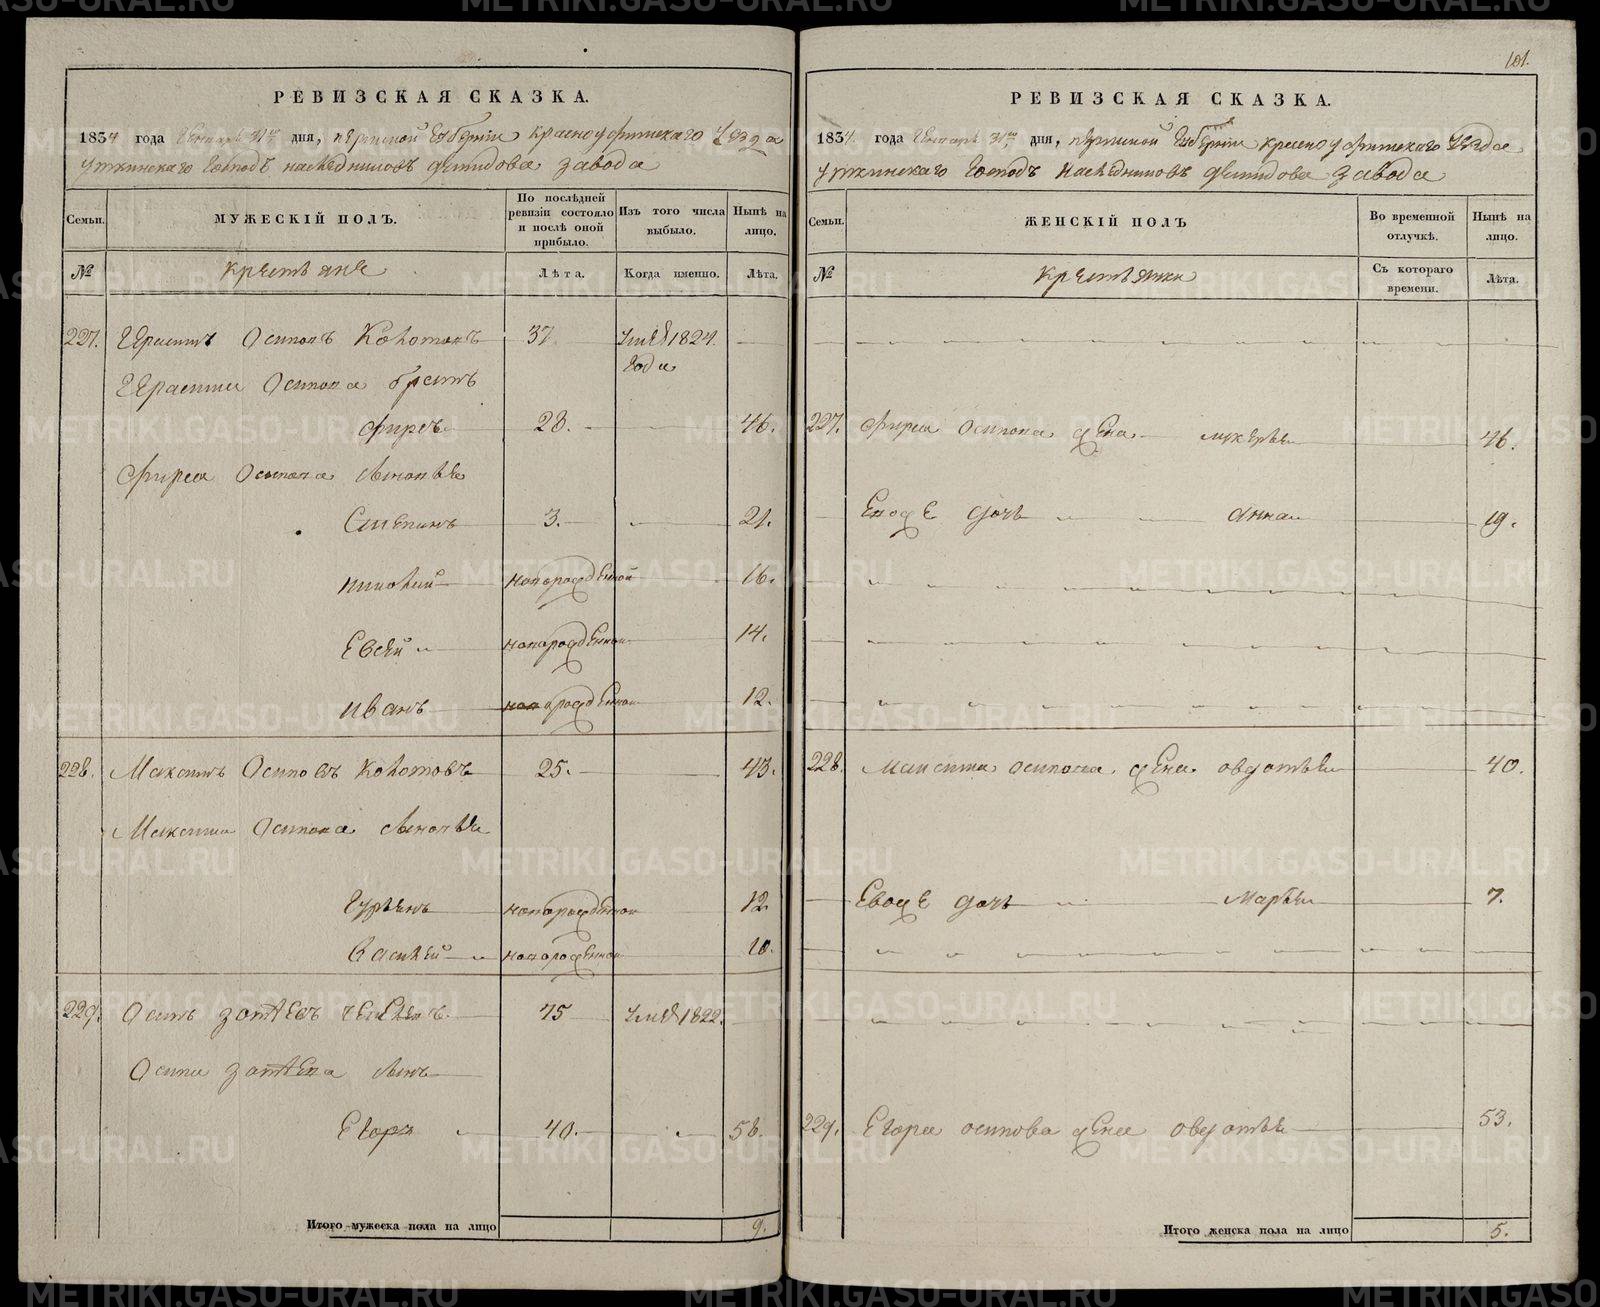 101.
РЕВИЗСКАЯ СКАЗКА.
1834 года Генваря 31го дня, Пермской Губернии Красноуфимскаго уезда
Уткинскаго Господъ наследниковъ Демидова завода
Семьи.
МУЖЕСКІЙ ПОЛЪ.
По послѣдней ревизіи состояло и послѣ оной прибыло.
Изъ того числа выбыло.
Нынѣ на лицо.
№
крестьяне
Лѣта.
Когда именно.
Лѣта.
227. Герасимъ Осиповъ 37 умѣ 1824.
года
Герасима Осипова братъ
Фирсъ 28. 46.
Фирса Осипова сыновья
Степанъ 3. 21.
новорожденной 16.
Евсей новорожденной 14.
Иванъ новорожденной 12.
228. Максимъ Осиповъ 25. 43.
Максима Осипова сыновья
Гурьянъ новорожденной 12.
Василей новорожденной 10.
229. Осипъ Зотѣевъ 75 умѣ 1822.
Осипа Зотѣева сынъ
Егоръ 40. 58.
Итого мужеска пола на лицо 9.
РЕВИЗСКАЯ СКАЗКА.
1834. года Генваря 31го дня, Пермской Губернии Красноуфимскаго уезда
Уткинскаго Господъ Наследниковъ Демидова завода
Семьи.
ЖЕНСКІЙ ПОЛЪ
Во временной отлучкѣ.
Нынѣ на лицо.
№
крестьянки
Съ котораго времени.
Лѣта.
227. Фирса Осипова жена 46.
Евоже дочь Анна 19.
228. Максима Осипова жена Овдотья 40.
Евоже дочь Марья 7.
229. Егора Осипова жена Овдотья 53.
Итого женска пола на лицо 5.
METRIKI.GASO-URAL.RU